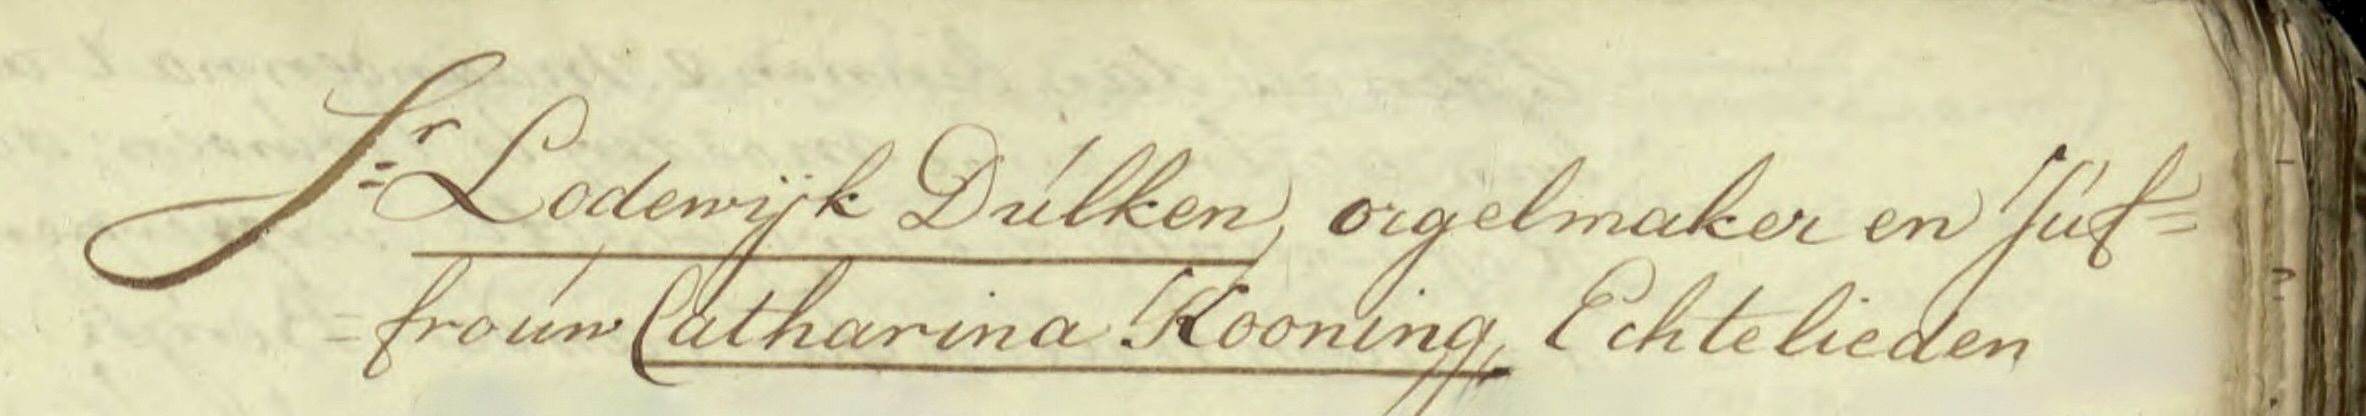 Sr= Lodewijk Dúlken, orgelmaker en Júf=
=froúw Catharina Kooning, Echtelieden